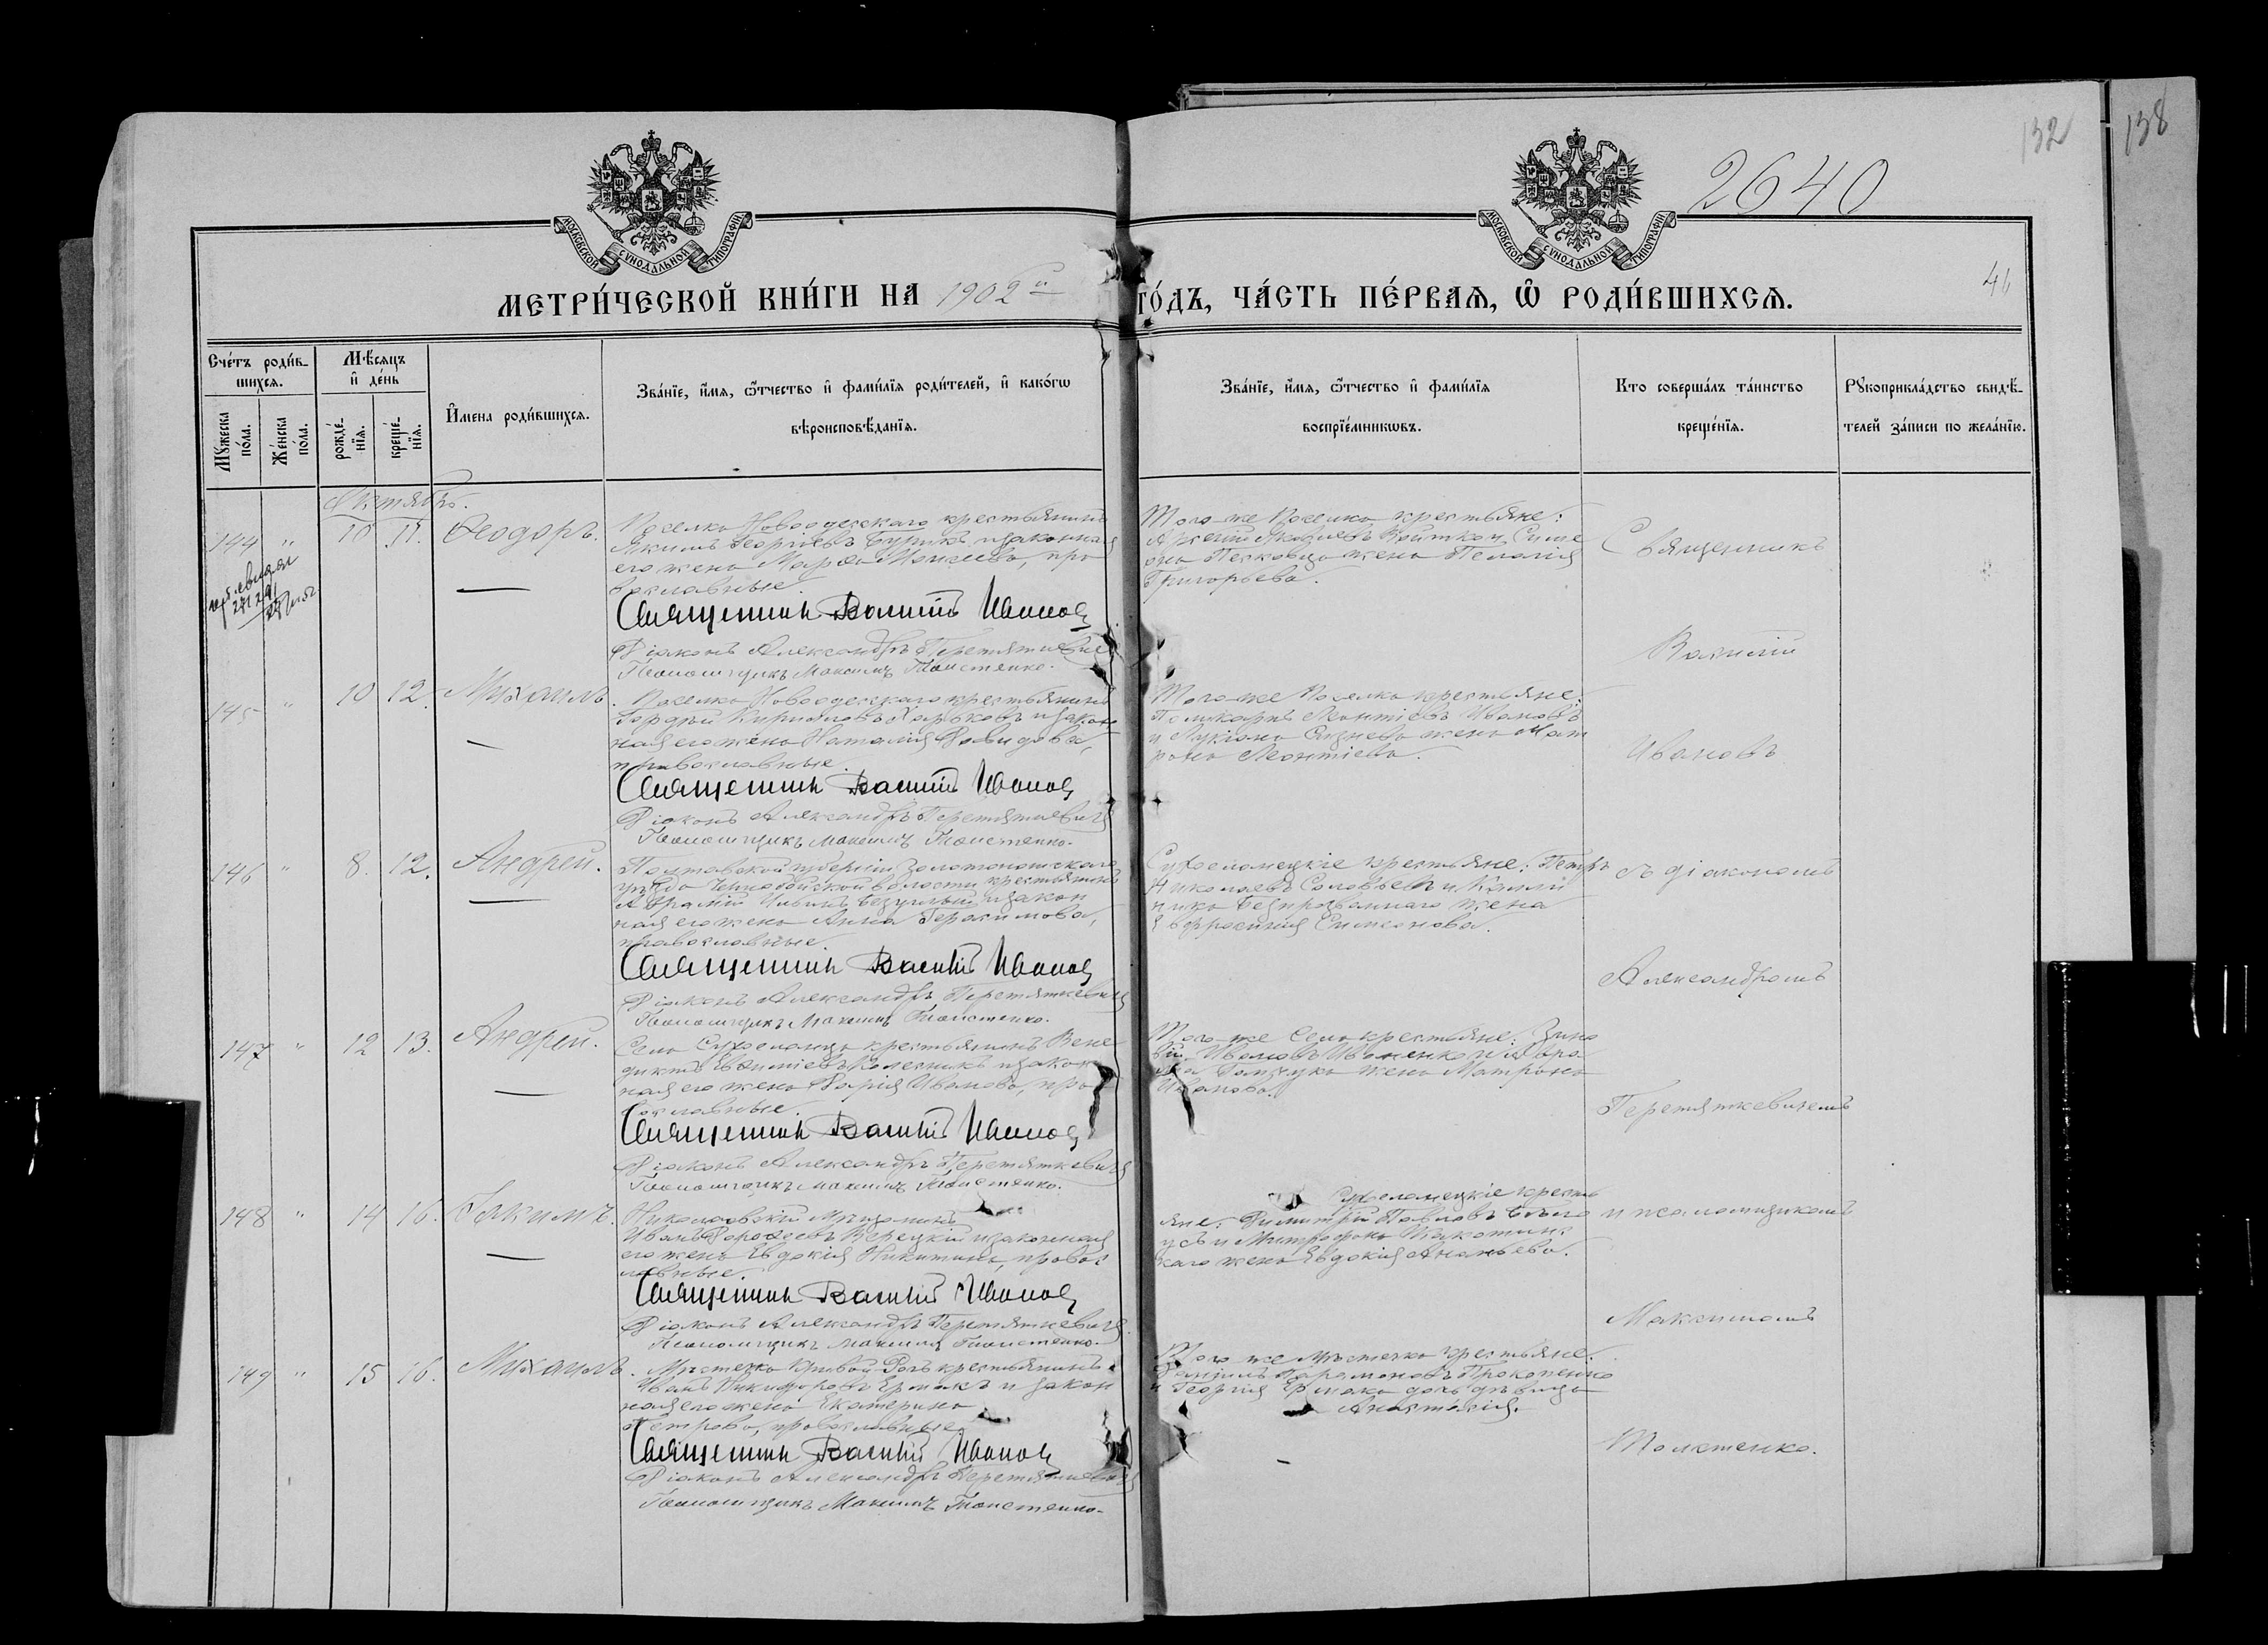 132
138
2640
41
МОСКОВСКОЙ СѴНОДАЛЬНОЙ ТИПОГРАФІИ
МОСКОВСКОЙ СѴНОДАЛЬНОЙ ТИПОГРАФІИ
МЕТРИ́ЧЕСКОЙ КНИ́ГИ НА 1902й
ГО́ДЪ, ЧА́СТЬ ПЕ́РВАЯ, Ѿ РОДИ́ВШИХСЯ.
Сче́тъ роди́в-
шихся.
Мꙋжеска по́ла.
Же́нска по́ла.
Мѣ́сяцъ и де́нь
рожде́-
нїя.
креще́-
нїя.
И҆мена роди́вшихся.
Зва́нїе, и҆́мя, ѻ҆́тчество и҆ фами́лїя роди́телей, и҆ како́гѡ
вѣроисповѣ́данїя.
Зва́нїе, и҆́мя, ѻ҆́тчество и҆ фами́лїя
воспрїе́мникѡвъ.
Кто соверша́лъ та́инство
креще́нїя.
Рꙋкоприкла́дство свидѣ́-
телей за́писи по жела́нїю.
Октябрь.
144 " 10 11. Ѳеодоръ.
Поселка Новоодесскаго крестьянинъ
Якимъ Георгіевъ и законная
его жена Марѳа Моисеева, пра
вославные.
Священникъ Василій Иванов
Діаконъ Александръ Перетяткевичъ
Псаломщикъ Максимъ Толстенко.
Того-же поселка крестьяне:
Яковлевъ и Симе
она жена Пелагія
Григорьева.
Священникъ
Василій
Ивановъ
съ діакономъ
Александромъ
Перетяткевичемъ
и псаломщикомъ
Максимомъ
Толстенко.
145 " 10 12. Михаилъ.
Поселка Новоодесскаго крестьянинъ
Гордѣй Кирилловъ Харьковъ и закон
ная его жена Наталія Давидова,
православные.
Священникъ Василій Иванов
Діаконъ Александръ Перетяткевичъ
Псаломщикъ Максимъ Толстенко.
Того-же поселка крестьяне:
Поликарпъ Леонтіевъ Ивановъ
и Лукіана жена Мат
рона Леонтіева.
146 " 8. 12. Андрей.
Полтавской губерніи Золотоношскаго
уѣзда Чернобойской волости крестьянинъ
Аврамій Ильинъ и закон
ная его жена Анна Герасимова,
православные.
Священникъ Василій Иванов
Діаконъ Александръ Перетяткевичъ
Псаломщикъ Максимъ Толстенко.
Сухоеланецкіе крестьяне: Петръ
Николаевъ Соловьевъ и Калли
ника жена
Евфросинія Симеонова.
147 " 12 13. Андрей.
Села Сухоеланца крестьянинъ Вене
диктъ Евѳиміевъ Колесникъ и закон
ная его жена Марія Иванова, пра
вославные.
Священникъ Василій Иванов
Діаконъ Александръ Перетяткевичъ
Псаломщикъ Максимъ Толстенко.
Того-же села крестьяне: Зино
вій Ивановъ Иваненко и
жена Матрона
Иванова.
148 " 14 16. Іакимъ.
Николаевскій мѣщанинъ
Иванъ Дороѳеевъ Верецкій и законная
его жена Евдокія Никитина, правос
лавные.
Священникъ Василій Иванов
Діаконъ Александръ Перетяткевичъ
Псаломщикъ Максимъ Толстенко.
Сухоеланецкіе кресть
яне: Димитрій Павловъ
и Митрофана
жена Евдокія Ананьева.
149 " 15 16. Михаилъ.
Мѣстечка Кривой-Рогъ крестьянинъ
Иванъ Никифоровъ Ермакъ и закон
ная его жена Екатерина
Петрова, православные.
Священникъ Василій Иванов
Діаконъ Александръ Перетяткевичъ
Псаломщикъ Максимъ Толстенко.
Того-же мѣстечка крестьяне:
Даніилъ Парамоновъ Прокопенко
и Георгія Ермака дочь дѣвица
Анастасія.